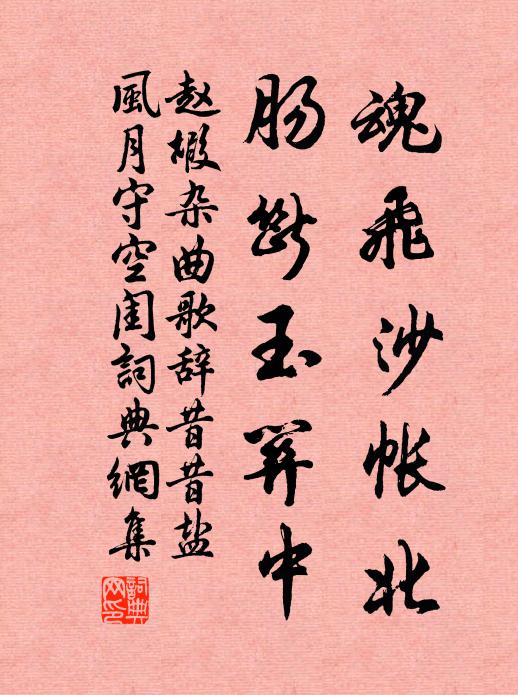 魂飛沙帳北
肠斷玉關中
赵嘏杂曲歌辞昔昔盐
風月守空閨詞典網集
詞典网印